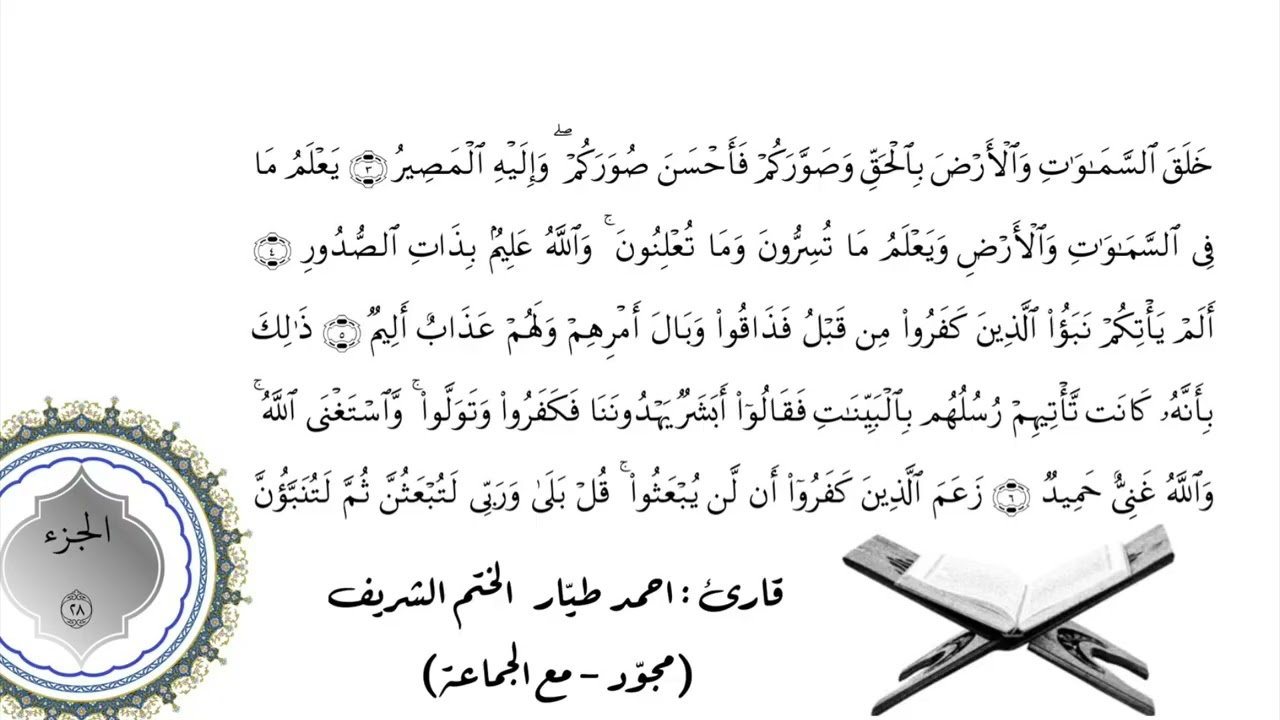 خَلَقَ ٱلسَّمَـٰوَٰتِ وَٱلْأَرْضَ بِٱلْحَقِّ وَصَوَّرَكُمْ فَأَحْسَنَ صُوَرَكُمْ ۖ وَإِلَيْهِ ٱلْمَصِيرُ ٣ يَعْلَمُ مَا
فِى ٱلسَّمَـٰوَٰتِ وَٱلْأَرْضِ وَيَعْلَمُ مَا تُسِرُّونَ وَمَا تُعْلِنُونَ ۚ وَٱللَّهُ عَلِيمٌۢ بِذَاتِ ٱلصُّدُورِ ٤
أَلَمْ يَأْتِكُمْ نَبَؤُا۟ ٱلَّذِينَ كَفَرُوا۟ مِن قَبْلُ فَذَاقُوا۟ وَبَالَ أَمْرِهِمْ وَلَهُمْ عَذَابٌ أَلِيمٌ ٥ ذَٰلِكَ
بِأَنَّهُۥ كَانَت تَّأْتِيهِمْ رُسُلُهُم بِٱلْبَيِّنَـٰتِ فَقَالُوٓا۟ أَبَشَرٌ يَهْدُونَنَا فَكَفَرُوا۟ وَتَوَلَّوا۟ ۚ وَّٱسْتَغْنَى ٱللَّهُ ۚ
وَٱللَّهُ غَنِىٌّ حَمِيدٌ ٦ زَعَمَ ٱلَّذِينَ كَفَرُوٓا۟ أَن لَّن يُبْعَثُوا۟ ۚ قُلْ بَلَىٰ وَرَبِّى لَتُبْعَثُنَّ ثُمَّ لَتُنَبَّؤُنَّ
الجزء
٢٨
قارئ : احمد طيّار الختم الشريف
(مجوّد - مع الجماعة)